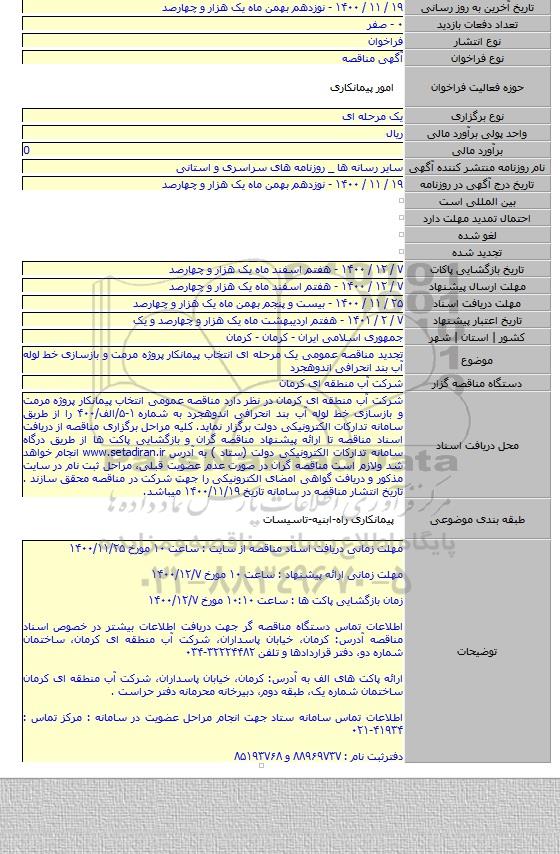 تاریخ آخرین به روز رسانی ۱۹ / ۱۱ / ۱۴۰۰ - نوزدهم بهمن ماه یک هزار و چهارصد
تعداد دفعات بازدید ۰ - صفر
نوع انتشار فراخوان
نوع فراخوان آگهی مناقصه
حوزه فعالیت فراخوان امور پیمانکاری
نوع برگزاری یک مرحله ای
واحد پولی برآورد مالی ریال
برآورد مالی 0
نام روزنامه منتشر کننده آگهی سایر رسانه ها _ روزنامه های سراسری و استانی
تاریخ درج آگهی در روزنامه ۱۹ / ۱۱ / ۱۴۰۰ - نوزدهم بهمن ماه یک هزار و چهارصد
بین المللی است
احتمال تمدید مهلت دارد
لغو شده
تجدید شده
تاریخ بازگشایی پاکات ۷ / ۱۲ / ۱۴۰۰ - هفتم اسفند ماه یک هزار و چهارصد
مهلت ارسال پیشنهاد ۷ / ۱۲ / ۱۴۰۰ - هفتم اسفند ماه یک هزار و چهارصد
مهلت دریافت اسناد ۲۵ / ۱۱ / ۱۴۰۰ - بیست و پنجم بهمن ماه یک هزار و چهارصد
تاریخ اعتبار پیشنهاد ۷ / ۲ / ۱۴۰۱ - هفتم اردیبهشت ماه یک هزار و چهارصد و یک
کشور | استان | شهر جمهوری اسلامی ایران - کرمان - کرمان
موضوع تجدید مناقصه عمومی یک مرحله ای انتخاب پیمانکار پروژه مرمت و بازسازی خط لوله
آب بند انحرافی اندوهجرد
دستگاه مناقصه گزار شرکت آب منطقه ای کرمان
محل دریافت اسناد شرکت آب منطقه ای کرمان در نظر دارد مناقصه عمومی انتخاب پیمانکار پروژه مرمت
و بازسازی خط لوله آب بند انحرافی اندوهجرد به شماره ۱-۵/الف/۴۰۰ را از طریق
سامانه تدارکات الکترونیکی دولت برگزار نماید. کلیه مراحل برگزاری مناقصه از دریافت
اسناد مناقصه تا ارائه پیشنهاد مناقصه گران و بازگشایی پاکت ها از طریق درگاه
سامانه تدارکات الکترونیکی دولت (ستاد) به آدرس www.setadiran.ir انجام خواهد
شد ولازم است مناقصه گران در صورت عدم عضویت قبلی، مراحل ثبت نام در سایت
مذکور و دریافت گواهی امضای الکترونیکی را جهت شرکت در مناقصه محقق سازند .
تاریخ انتشار مناقصه در سامانه تاریخ ۱۴۰۰/۱۱/۱۹ میباشد.
طبقه بندی موضوعی پیمانکاری راه-ابنیه-تاسیسات
توضیحات
مهلت زمانی دریافت اسناد مناقصه از سایت : ساعت ۱۰ مورخ ۱۴۰۰/۱۱/۲۵
مهلت زمانی ارائه پیشنهاد : ساعت ۱۰ مورخ ۱۴۰۰/۱۲/۷
زمان بازگشایی پاکت ها : ساعت ۱۰:۱۰ مورخ ۱۴۰۰/۱۲/۷
اطلاعات تماس دستگاه مناقصه گر جهت دریافت اطلاعات بیشتر در خصوص اسناد
مناقصه آدرس: کرمان، خیابان پاسداران، شرکت آب منطقه ای کرمان، ساختمان
شماره دو، دفتر قراردادها و تلفن ۳۲۲۲۴۴۸۲-۰۳۴
ارائه پاکت های الف به آدرس: کرمان، خیابان پاسداران، شرکت آب منطقه ای کرمان
ساختمان شماره یک، طبقه دوم، دبیرخانه محرمانه دفتر حراست .
اطلاعات تماس سامانه ستاد جهت انجام مراحل عضویت در سامانه : مرکز تماس :
۰۲۱-۴۱۹۳۴
دفترثبت نام : ۸۸۹۶۹۷۳۷ و ۸۵۱۹۳۷۶۸
پایگاه اطلاع رسانی مناقصه و مزایده
۰۲۱-۸۸۳۴۹۶۷۰-۵